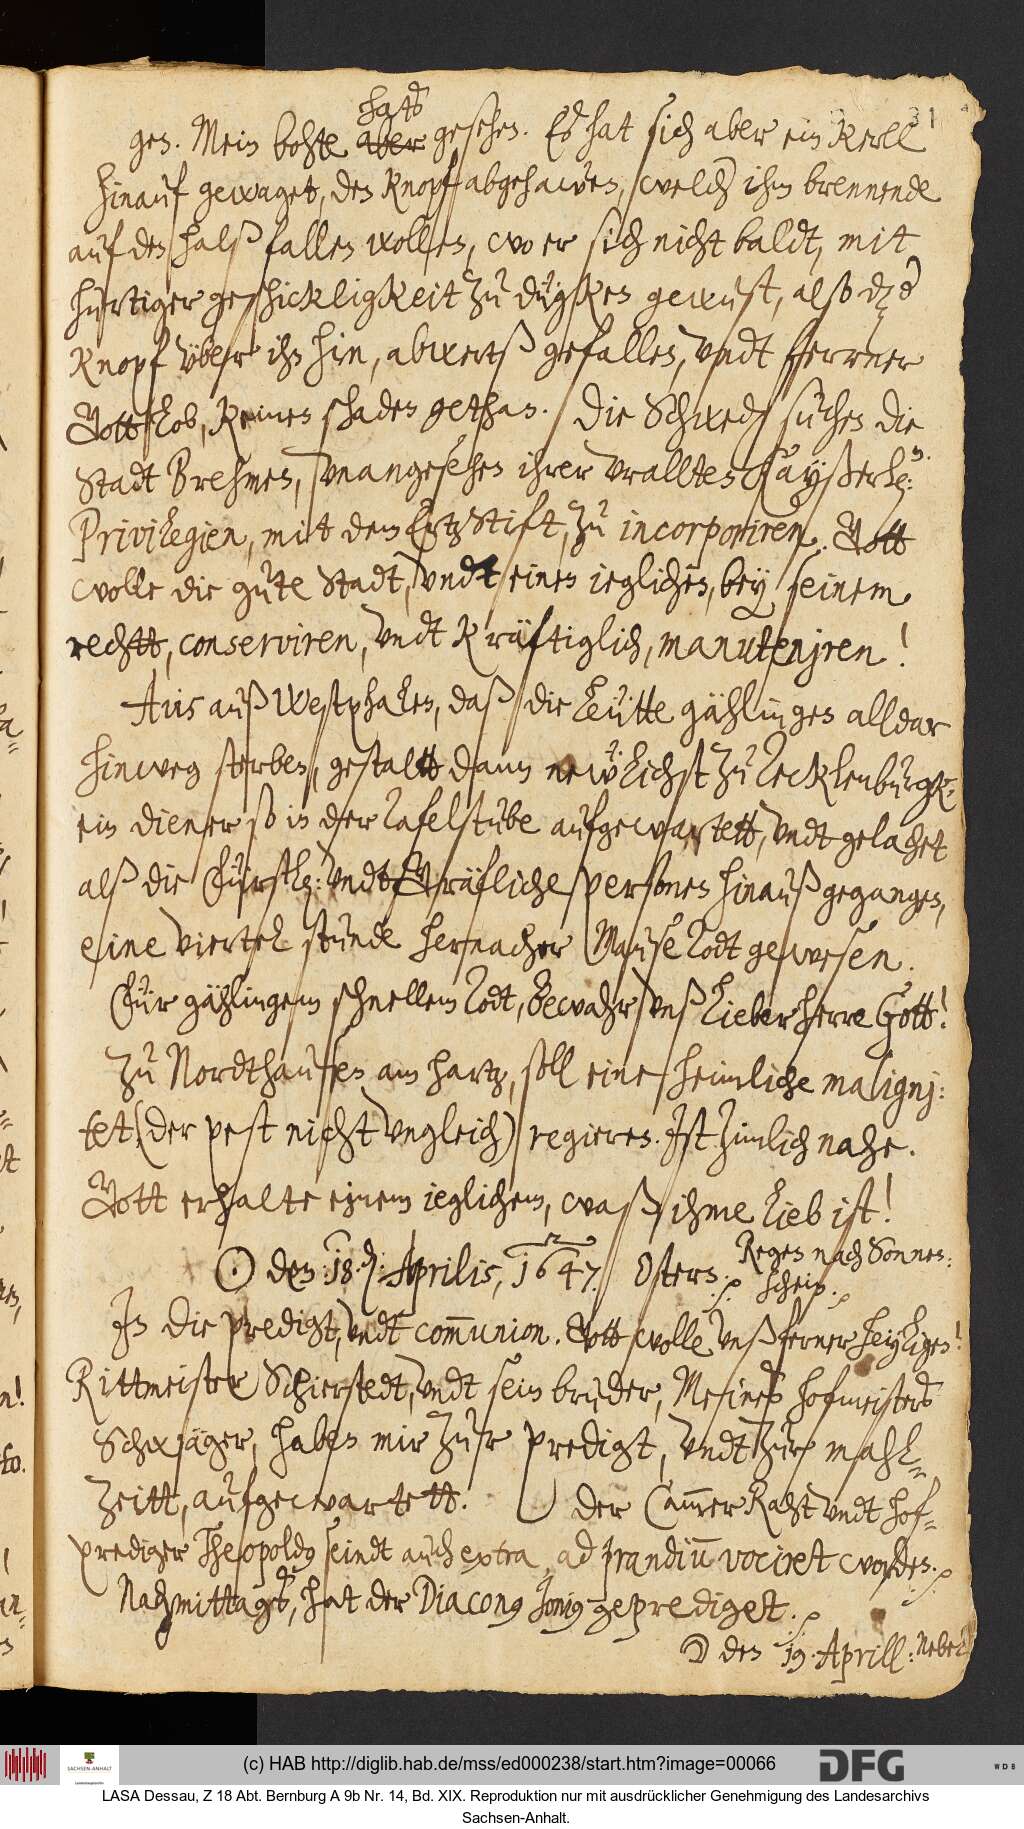 31
hats
gen. Mein bohte aber gesehen. Es hat sich aber ein Kerll
hinauf gewaget, den Knopf abgehawen, welch ihm brennende
auf den halß fallen wollen, wo er sich nicht baldt, mit
hurtiger geschickligkeit zu dügken gewust, also dz der
Knopf über ihn hin, abwerts gefallen, undt fferrner
Gott lob, Keinen schaden gethan. Die Schwed: suchen die
Stadt Brehmen, unangesehen ihrer uralten Kayßerl:n
Privilegien, mit dem ErtzStift, zu incorporiren. Gott
wolle die gute Stadt, undt einen ieglichen, bey seinem
rechtt, conserviren, undt Kräftiglich, manutenjren!
Avis auß Westphalen, daß die Leütte gählingen alldar
hinweg sterben, gestaltt dann newlichst zu Tecklenburgk:
ein diener so in der Tafelstube aufgewartett, undt gelachet
alß die Fürstl: undt Gräfliche personen hinauß gegangen,
eine viertel stunde hernacher Mausetodt gewesen.
Für gählingem schnellem Todt, bewahr unß lieber herre Gott!
Zu Nordthausen am hartz, soll eine heimliche malignj:
tet (der pest nicht ungleich) regieren. Ist zimlich nahe.
Gott erhalte einem ieglichem, waß ihme lieb ist!
☉ den: 18. d: Aprilis, 1647. Ostern: Regen nach Sonnen:
schein.
In die predigt, undt com̅union. Gott wolle unß ferner heyligen!
Rittmeister Schierstedt, undt sein bruder, Meines hofmeisters
Schwäger, haben mir zur predigt, undt zur mahl=
zeitt, aufgewartett. Der Cam̅er Raht undt hof=
prediger Theopoldg seindt auch extra, ad prandiu̅ vociret worden.
Nachmittagß, hat der Diacong Jonig geprediget.
☽ den 19. Aprill: Nebel
(c) HAB http://diglib.hab.de/mss/ed000238/start.htm?image=00066
SACHSEN-ANHALT
DFG
WDB
LASA Dessau, Z 18 Abt. Bernburg A 9b Nr. 14, Bd. XIX. Reproduktion nur mit ausdrücklicher Genehmigung des Landesarchivs
Sachsen-Anhalt.